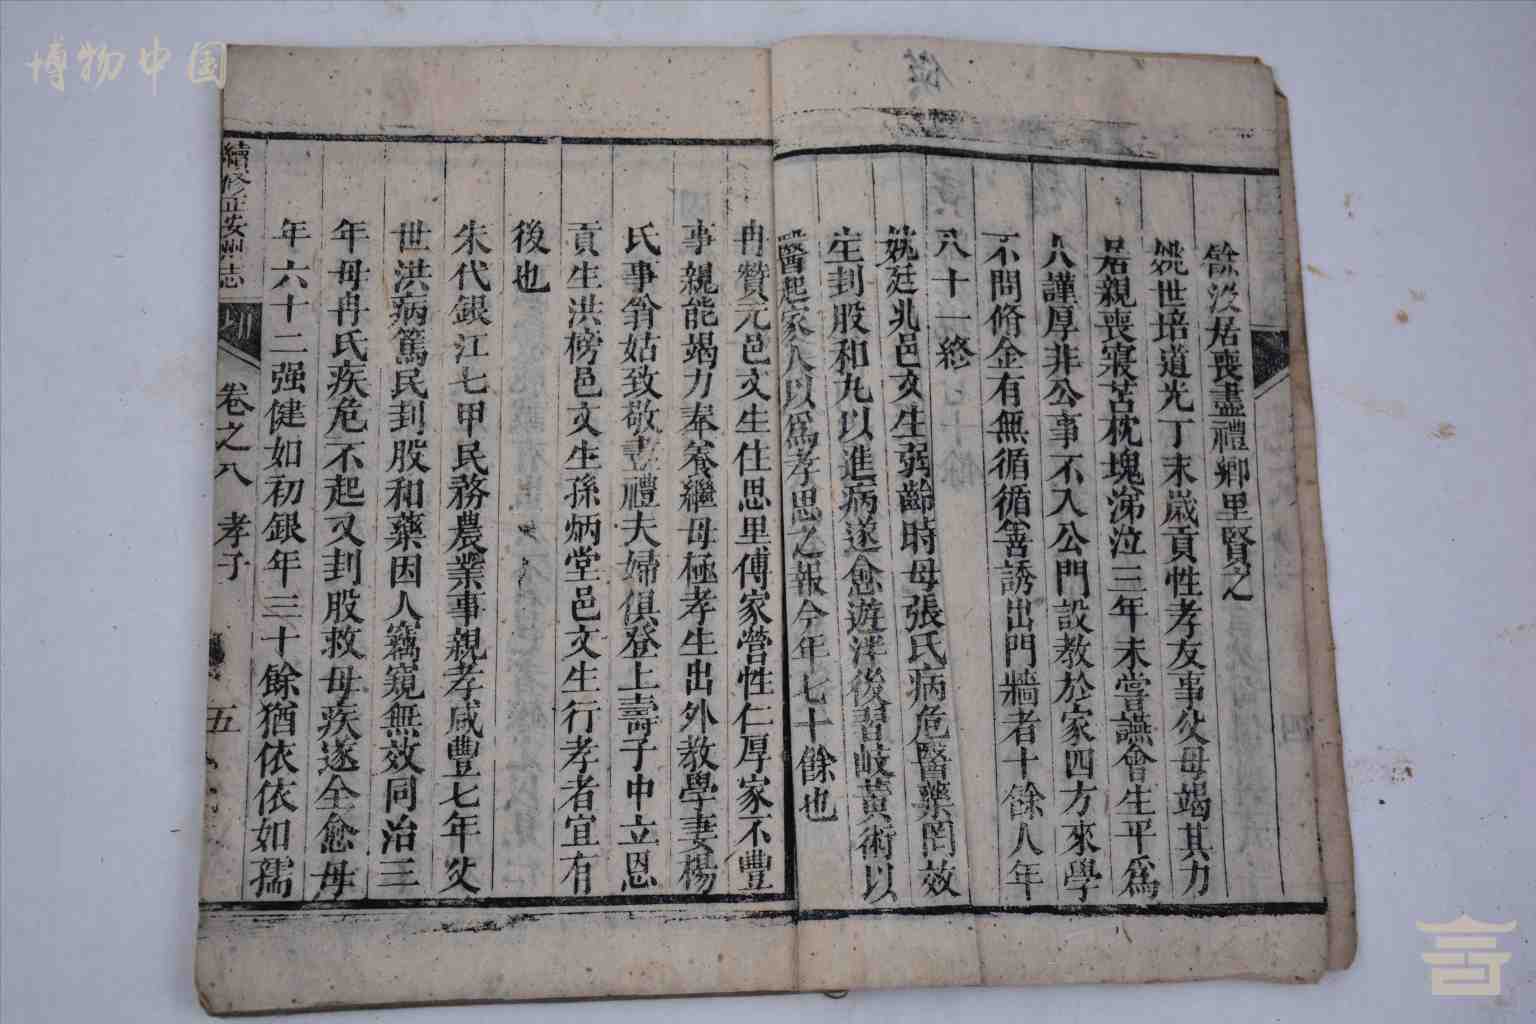 博物中国
餘沒居喪盡禮鄉里賢之
姚世培道光丁未歲貢性孝友事父母竭其力
居親喪寢苫枕塊涕泣三年未嘗讌會生平爲
人謹厚非公事不入公門設教於家四方來學
不問脩金有無循循善誘出門牆者十餘人年
八十一終
姚廷兆邑文生弱齡時母張氏病危醫藥罔效
生刲股和丸以進病遂愈遊泮後習岐黃術以
醫起家人以爲孝思之報今年七十餘也
冉贊元邑文生住思里傅家營性仁厚家不豐
事親能竭力奉養繼母極孝生出外教學妻楊
氏事翁姑致敬盡禮夫婦俱登上壽子中立恩
貢生洪榜邑文生孫炳堂邑文生行孝者宜有
後也
朱代銀江七甲民務農業事親孝咸豐七年父
世洪病篤民刲股和藥因人竊窺無效同治三
年母冉氏疾危不起又刲股救母疾遂全愈母
年六十二强健如初銀年三十餘猶依依如孺
續修正安州志
卷之八 孝子
五